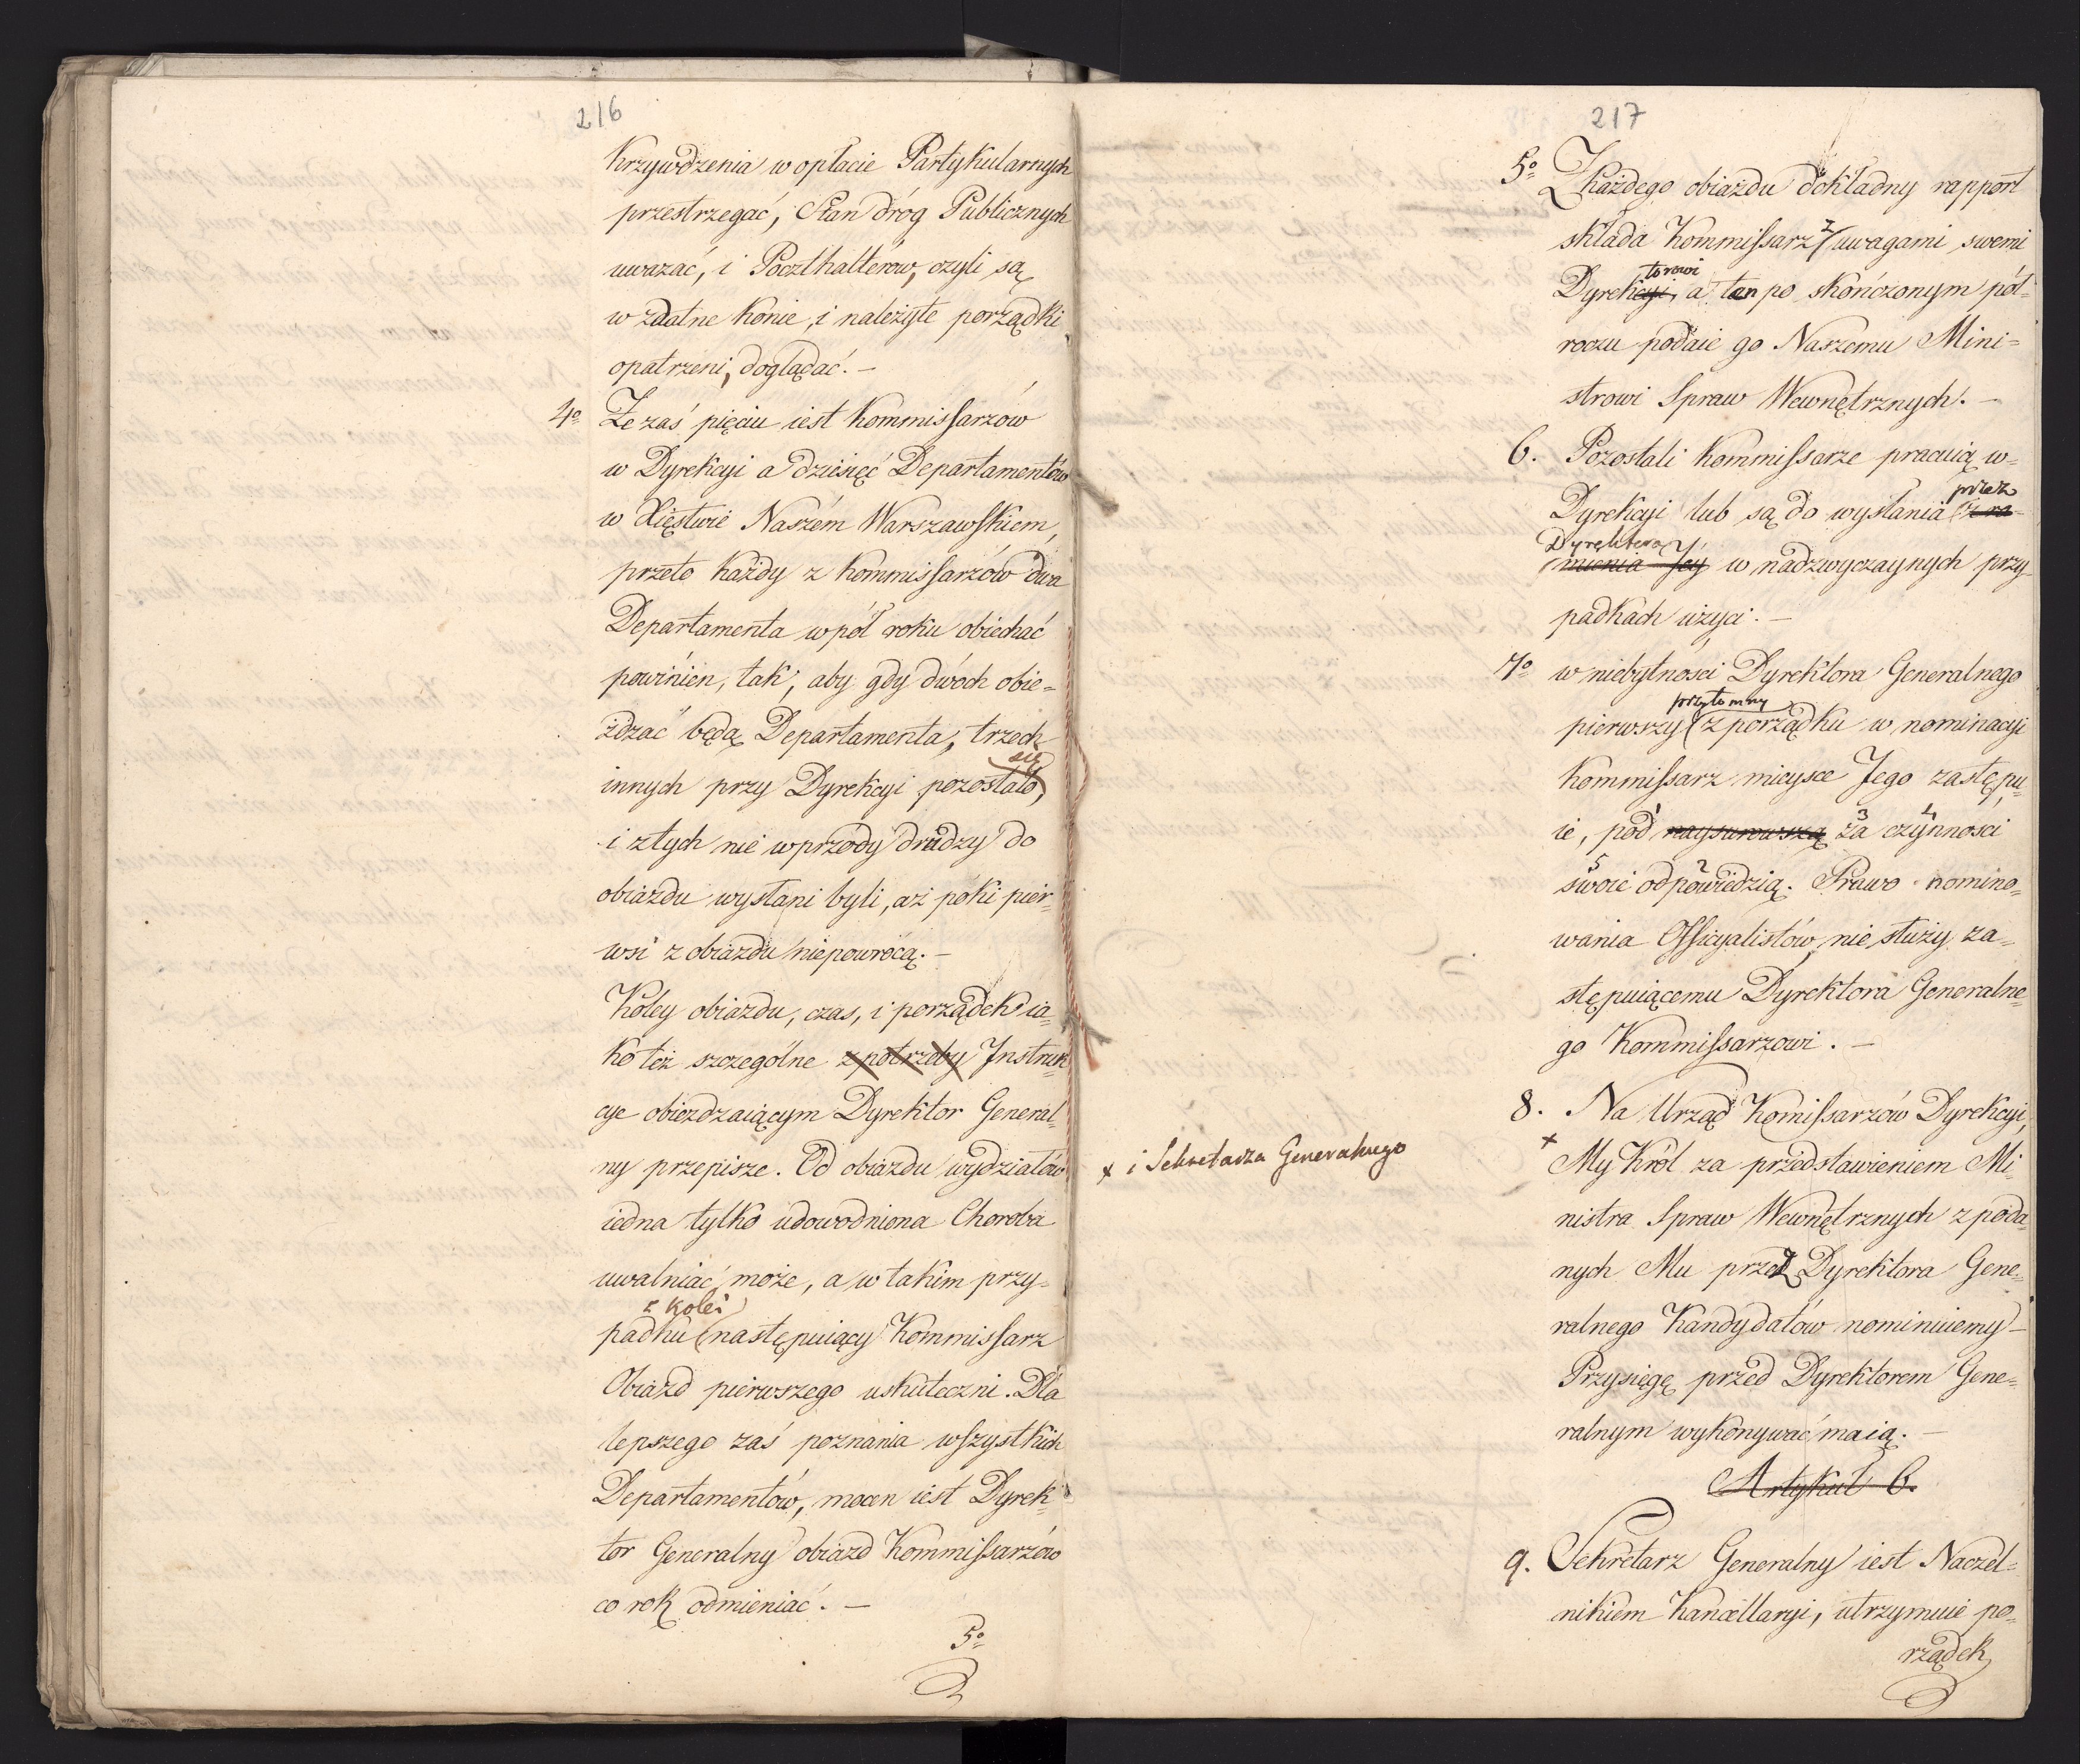 216
krzywdzenia w opłacie Partykularnych
przestrzegać, Stan dróg Publicznych
uwazać, i Poczthalterow, czyli są
w zdatne konie, i należyte porządki
opatrzeni, doglądać. –
4o Że zaś pięciu iest Kommissarzów
w Dyrekcyi a dziesięć Departamentów
w Xięstwie Naszém Warszawskiem,
przeto każdy z Kommissarzów dwa
Departamenta w pół roku obiechać
powinien, tak, aby gdy dwóch obie=
żdzać będą Departamenta, trzech
się
innych przy Dyrekcyi pozostało,
i z tych nie wprzódy drudzy do
obiazdu wysłani byli, aż póki pier=
wsi z obiazdu niepowrócą. –
Koley obiazdu, czas, i porządek ia=
ko też szczególne z potrzeby Instruk=
cye obieżdzaiącym Dyrektor General=
ny przepisze. Od obiazdu wydziałów
iedna tylko udowodniona Choroba
uwalniać może, a w takim przy=
z kolei
padku następuiący Kommissarz
Obiazd pierwszego uskuteczni. Dla
lepszego zaś poznania wszystkich
Departamentów, mocen iest Dyrek=
tor Generalny obiazd Kommissarzów
co rok odmieniać. –
5o
217
5o Z każdego obiazdu dokładny rapport
składa Kommissarz z uwagami swemi
torowi
Dyrekcyi, a ten po skończonym pół=
roczu podaie go Naszemu Mini=
strowi Spraw Wewnętrznych. –
6. Pozostali Kommissarze pracuią w=
przez
Dyrekcyi lub są do wysłania z ra=
Dyrektora
mienia Jéy w nadzwyczaynych przy=
padkach użyci. –
7o w niebytności Dyrektora Generalnego
przytomny
pierwszy z porządku w nominacyi
Kommissarz mieysce Jego zastępu=
ie, pod naysurowszą 3 za 4 czynności
5 swoie 2 odpowiedzią. Prawo nomino=
wania Officyalistów, nie służy za=
stępuiącemu Dyrektora Generalne=
go Kommissarzowi. –
8. Na Urząd Komissarzów Dyrekcyi,
x
x i Sekretarza Generalnego
My Król za przedstawieniem Mi=
nistra Spraw Wewnętrznych z poda=
nych Mu przez Dyrektora Gene=
ralnego Kandydatów nominuiemy –
Przysięgę przed Dyrektorem Gene=
ralnym wykonywać maią. –
Artykuł 6.
9. Sekretarz Generalny iest Naczel=
nikiem Kancellaryi, utrzymuie po=
rządek